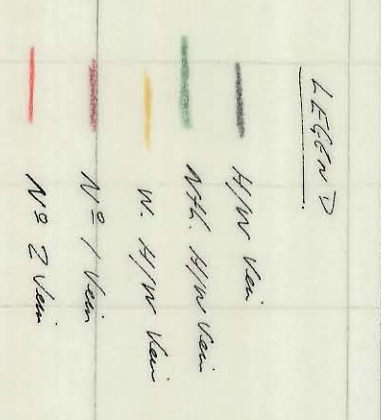 LEGEND
H/W Vein
Nth. H/W Vein
W. H/W Vein
Nº 1 Vein
Nº 2 Vein